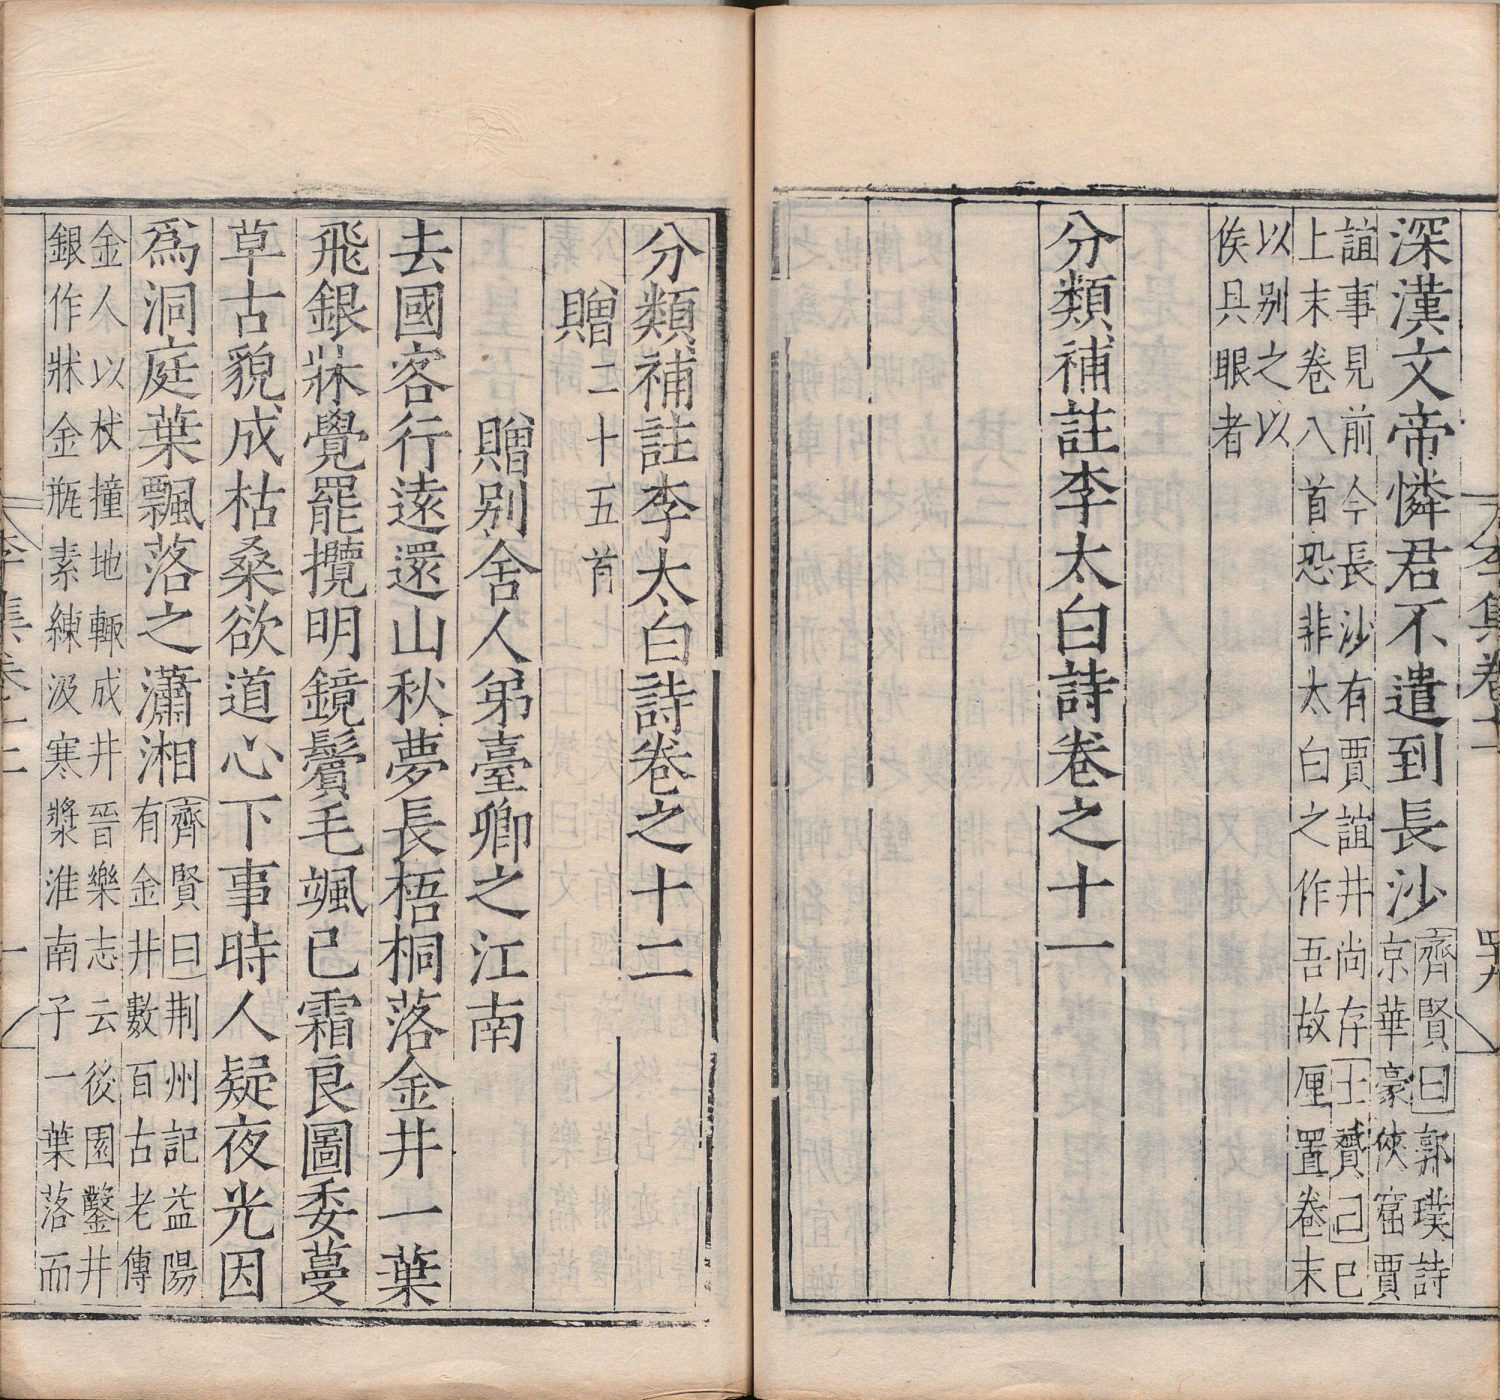 深漢文帝憐君不遣到長沙
齊賢曰郭璞詩
京華豪俠窟賈
誼事見前今長沙有賈誼井尚存士贇曰已
上末卷八首恐非太白之作吾故厘置卷末
以别之以
俟具眼者
分類補註李太白詩卷之十一
李集卷十一
四九
分類補註李太白詩卷之十二
贈二十五首
贈别舍人弟臺卿之江南
去國客行遠還山秋夢長梧桐落金井一葉
飛銀牀覺罷攬明鏡鬢毛颯已霜良圖委蔓
草古貌成枯桑欲道心下事時人疑夜光因
爲洞庭葉飄落之瀟湘
齊賢曰荆州記益陽
有金井數百古老傳
金人以杖撞地輙成井晉樂志云後園鑿井
銀作牀金瓶素練汲寒漿淮南子一葉落而
李集卷十二
一